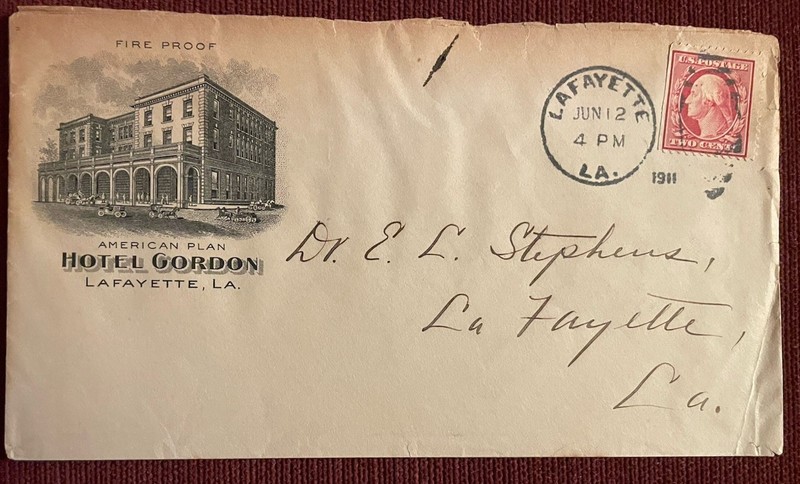 FIRE PROOF
AMERICAN PLAN
HOTEL GORDON
LAFAYETTE, LA.
LAFAYETTE
JUN 12
4 PM
LA.
1911
U.S. POSTAGE
TWO CENTS
Dr. E. L. Stephens,
La Fayette,
La.